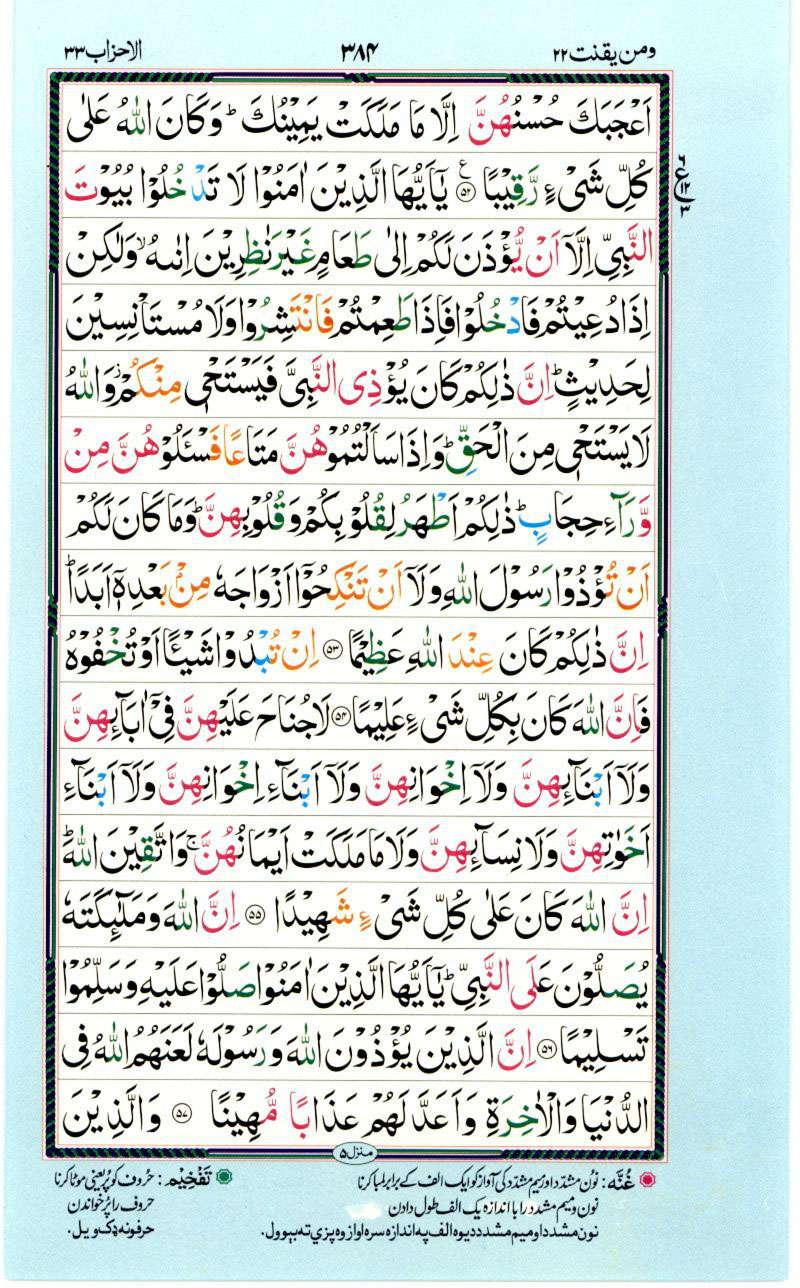 ومن یقنت ۲۲ ۳۸۴ الاحزاب ۳۳
اَعْجَبَكَ حُسْنُهُنَّ اِلَّا مَا مَلَكَتْ يَمِيْنُكَ ؕ وَكَانَ اللّٰهُ عَلٰى
كُلِّ شَیْءٍ رَّقِيْبًا ﴿۵۲﴾ يٰۤاَيُّهَا الَّذِيْنَ اٰمَنُوْا لَا تَدْخُلُوْا بُيُوْتَ
النَّبِیِّ اِلَّاۤ اَنْ يُّؤْذَنَ لَكُمْ اِلٰى طَعَامٍ غَيْرَ نٰظِرِيْنَ اِنٰىهُ ۙ وَلٰكِنْ
اِذَا دُعِيْتُمْ فَادْخُلُوْا فَاِذَا طَعِمْتُمْ فَانْتَشِرُوْا وَلَا مُسْتَاْنِسِيْنَ
لِحَدِيْثٍ ؕ اِنَّ ذٰلِكُمْ كَانَ يُؤْذِی النَّبِیَّ فَيَسْتَحْیٖ مِنْكُمْ ؗ وَاللّٰهُ
لَا يَسْتَحْیٖ مِنَ الْحَقِّ ؕ وَاِذَا سَاَلْتُمُوْهُنَّ مَتَاعًا فَسْـَٔلُوْهُنَّ مِنْ
وَّرَآءِ حِجَابٍ ؕ ذٰلِكُمْ اَطْهَرُ لِقُلُوْبِكُمْ وَقُلُوْبِهِنَّ ؕ وَمَا كَانَ لَكُمْ
اَنْ تُؤْذُوْا رَسُوْلَ اللّٰهِ وَلَاۤ اَنْ تَنْكِحُوْۤا اَزْوَاجَهٗ مِنْۢ بَعْدِهٖۤ اَبَدًا ؕ
اِنَّ ذٰلِكُمْ كَانَ عِنْدَ اللّٰهِ عَظِيْمًا ﴿۵۳﴾ اِنْ تُبْدُوْا شَيْـًٔا اَوْ تُخْفُوْهُ
فَاِنَّ اللّٰهَ كَانَ بِكُلِّ شَیْءٍ عَلِيْمًا ﴿۵۴﴾ لَا جُنَاحَ عَلَيْهِنَّ فِیْۤ اٰبَآئِهِنَّ
وَلَاۤ اَبْنَآئِهِنَّ وَلَاۤ اِخْوَانِهِنَّ وَلَاۤ اَبْنَآءِ اِخْوَانِهِنَّ وَلَاۤ اَبْنَآءِ
اَخَوٰتِهِنَّ وَلَا نِسَآئِهِنَّ وَلَا مَا مَلَكَتْ اَيْمَانُهُنَّ ۚ وَاتَّقِيْنَ اللّٰهَ ؕ
اِنَّ اللّٰهَ كَانَ عَلٰى كُلِّ شَیْءٍ شَهِيْدًا ﴿۵۵﴾ اِنَّ اللّٰهَ وَمَلٰٓئِكَتَهٗ
يُصَلُّوْنَ عَلَى النَّبِیِّ ؕ يٰۤاَيُّهَا الَّذِيْنَ اٰمَنُوْا صَلُّوْا عَلَيْهِ وَسَلِّمُوْا
تَسْلِيْمًا ﴿۵۶﴾ اِنَّ الَّذِيْنَ يُؤْذُوْنَ اللّٰهَ وَرَسُوْلَهٗ لَعَنَهُمُ اللّٰهُ فِی
الدُّنْيَا وَالْاٰخِرَةِ وَاَعَدَّ لَهُمْ عَذَابًا مُّهِيْنًا ﴿۵۷﴾ وَالَّذِيْنَ
ع
۶
۱۲
۳
منزل ۵
غُنّه: نُون مشدّد اور میم مشدّد کی آواز کو ایک الف کے برابر لمبا کرنا
نون و میم مشدد را با اندازه یک الف طول دادن
نون مشدد او میم مشدد دیوه الف په اندازه سره اواز وه پزې ته بېوول.
تَفْخِیْم: حُروف کو پُر یعنی موٹا کرنا
حروف را پُر خواندن
حرفونه ډک ویل.